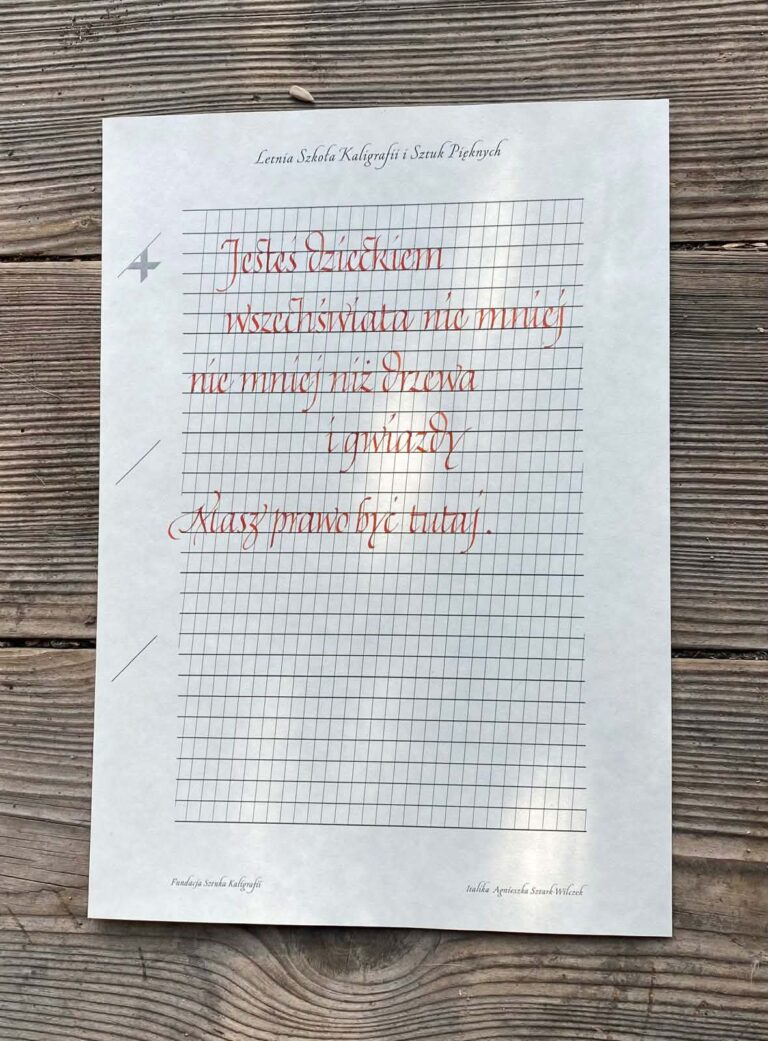 Letnia Szkoła Kaligrafii i Sztuk Pięknych
4
Jesteś dzieckiem
wszechświata nie mniej
nie mniej niż drzewa
i gwiazdy
Masz prawo być tutaj.
Fundacja Sztuka Kaligrafii
Italika Agnieszka Sztark-Wilczek